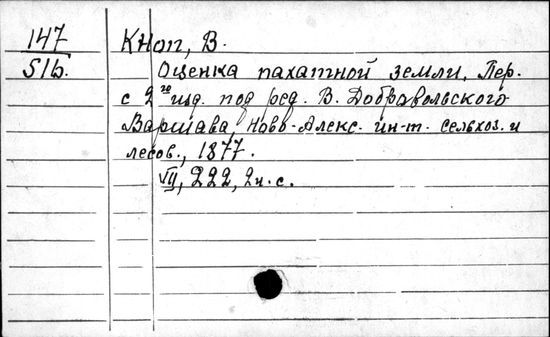 147
516.
Кноп, В.
Оценка пахатной земли. Пер.
с 2го изд. под ред. В. Добровольского
Варшава, Ново-Алекс. ин-т. сельхоз. и
лесов., 1877.
VII, 222, 2 н. с.